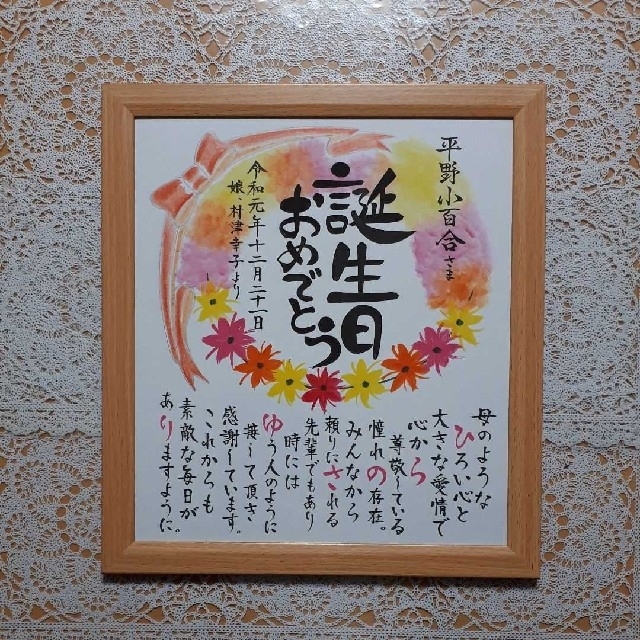 平野小百合さま
誕生日
おめでとう
令和元年十二月二十一日
娘、村津幸子より
母のような
ひろい心と
大きな愛情で
心から
尊敬している
憧れの存在。
みんなから
頼りにされる
先輩でもあり
時には
ゆう人のように
接して頂き
感謝しています。
これからも
素敵な毎日が
ありますように。